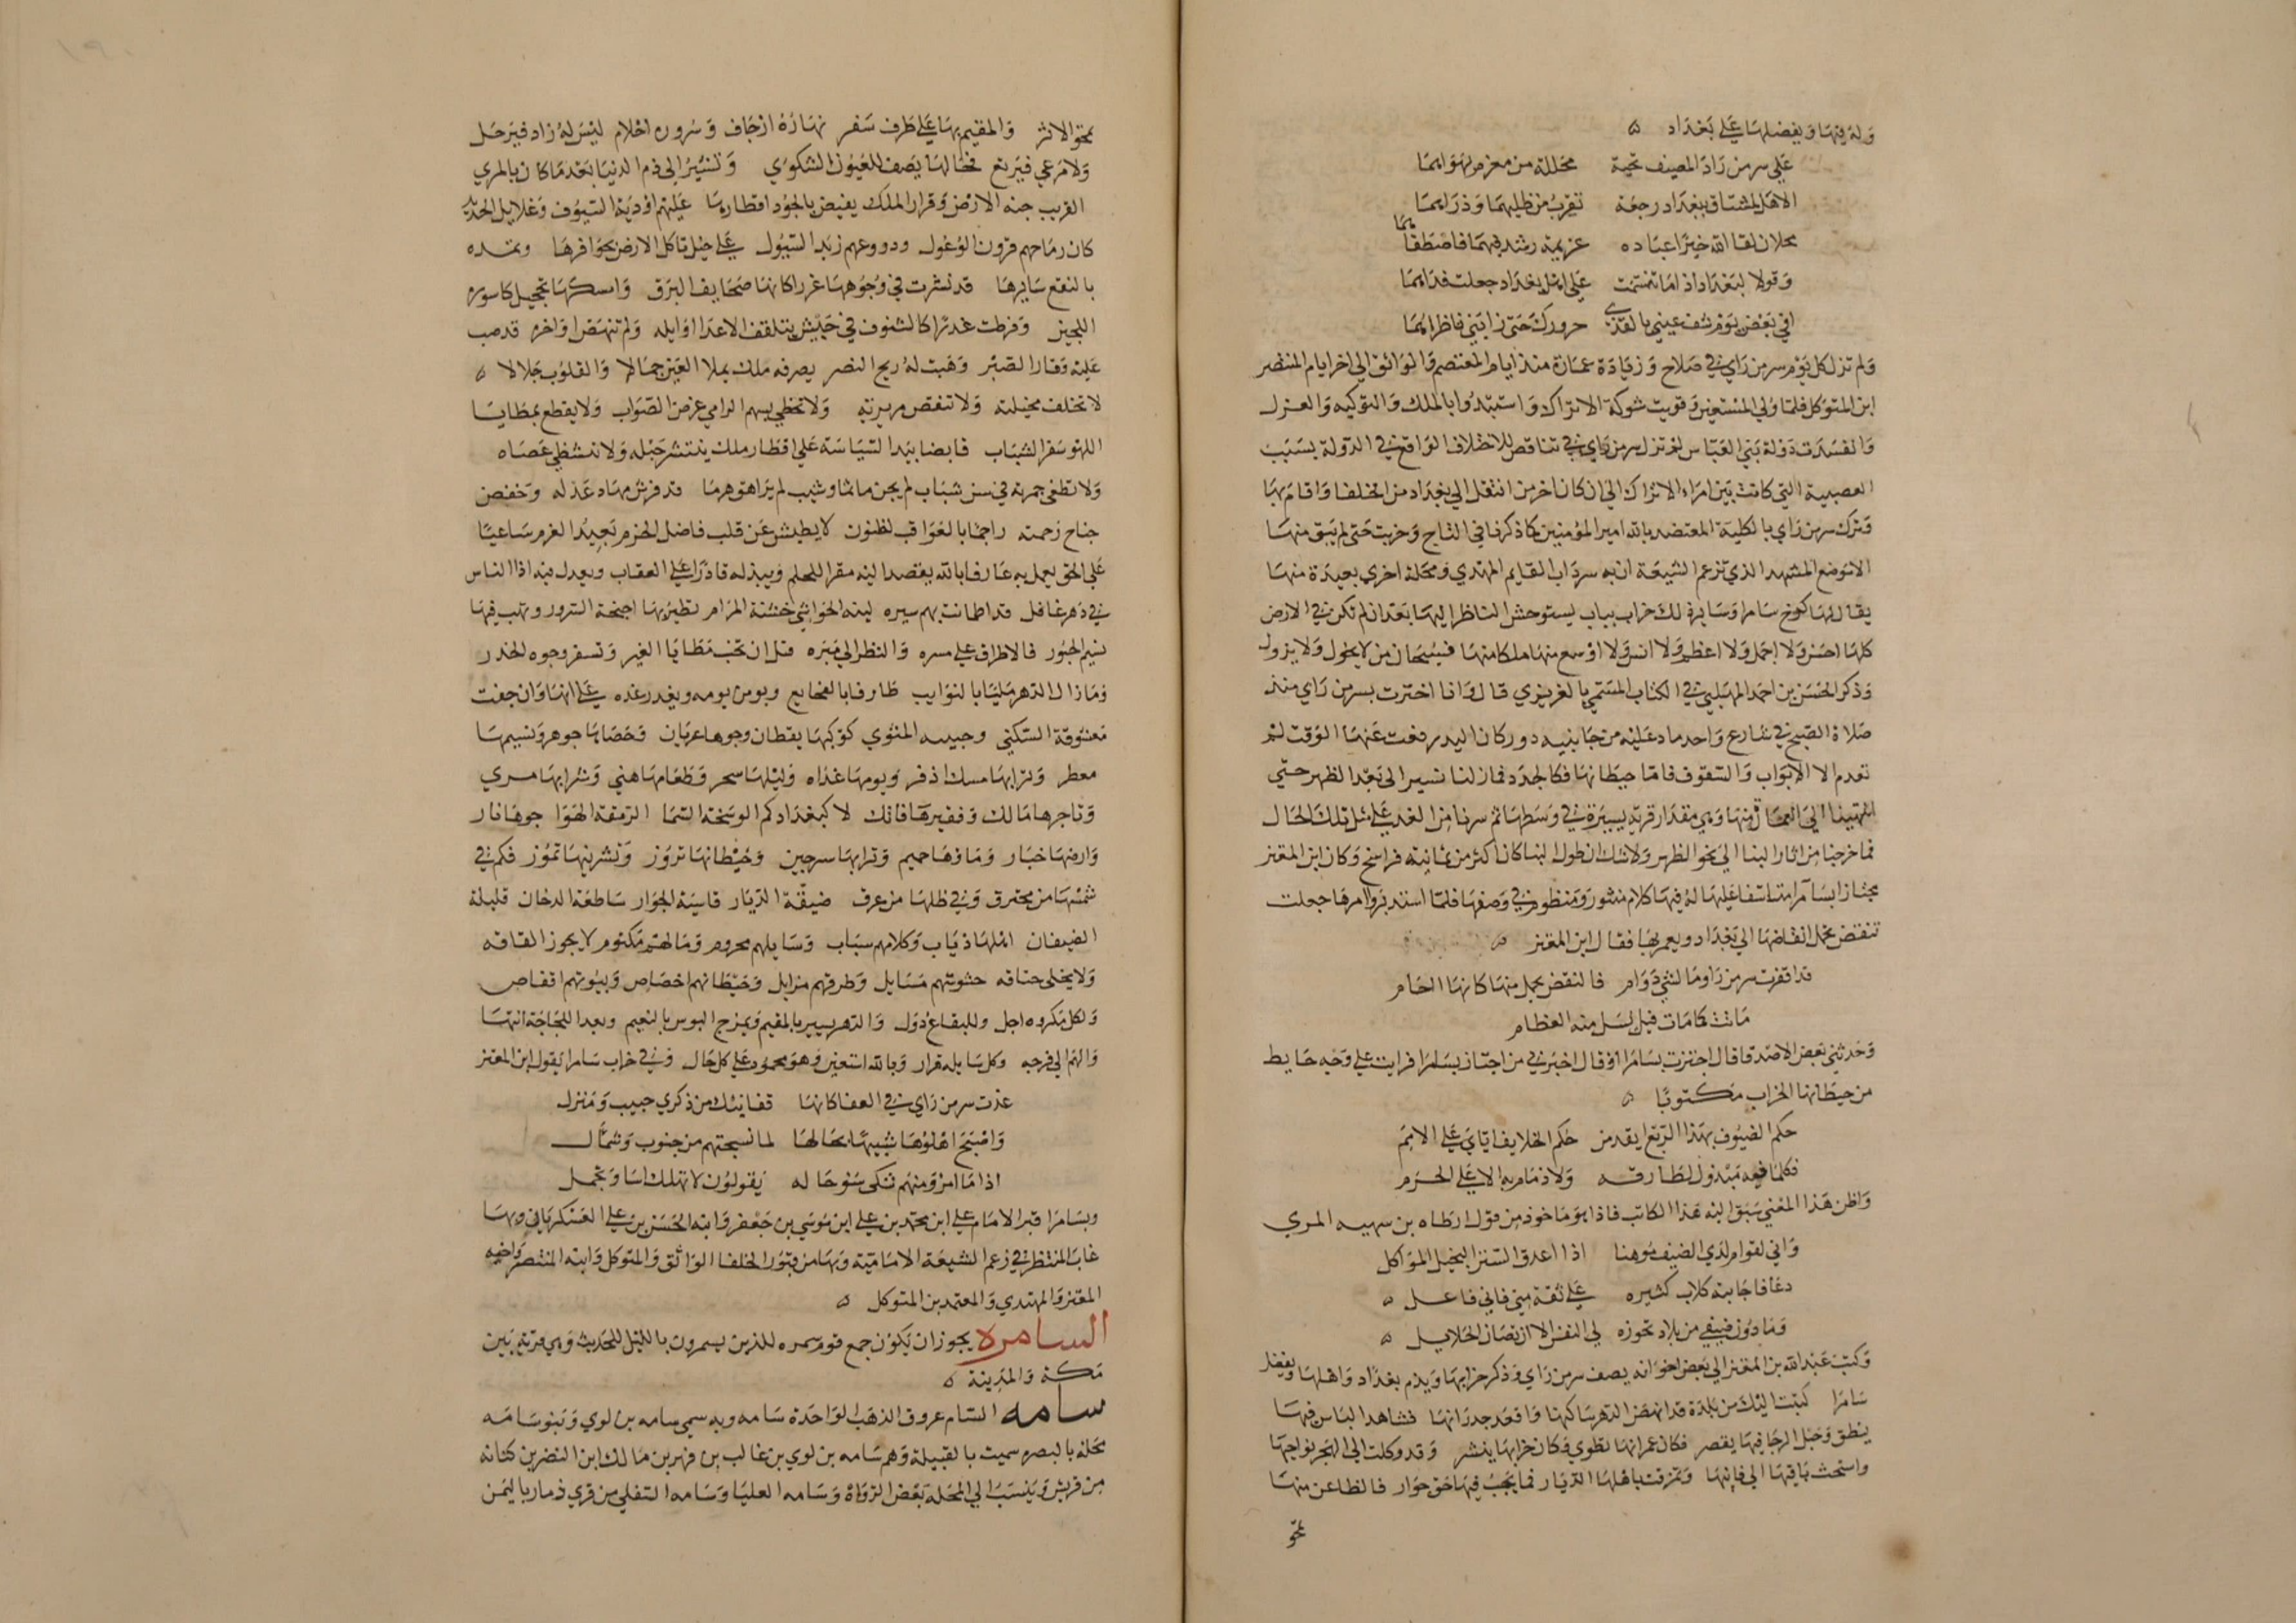 وله فيها ويفضلها على بغداد
على سر من راء المصيف تحية مجللة من مغرم بهواهما
الا هل لمشتاق ببغداد رجعة تقرب من ظليهما وذراهما
محلان لقا الله خير اعباده عزيمة رشد فيهما فاصطفاهما
وقولا لبغداد اذا ما تنسمت على اهل بغداد جعلت فداهما
افي بعض يوم شف عيني بالقذى حرورك حتى رابني ناظراهما
ولم تزل كل يوم سر من راي في صلاح وزيادة عمارة منذ ايام المعتصم والواثق الى اخر ايام المنتصر
ابن المتوكل فلما ولي المستعين وقويت شوكة الاتراك واستبدوا بالملك والتوليه والعزل
وانفسدت دولة بني العباس لم تزل سر من راي في تناقص للاختلاف الواقع في الدولة بسبب
العصبية التي كانت بين امراء الاتراك الى ان كان اخر من انتقل الى بغداد من الخلفا واقام بها
وترك سر من راي بالكلية المعتضد بالله امير المؤمنين كما ذكرنا في التاج وخربت حتى لم يبق منها
الا موضع المشهد الذي تزعم الشيعة ان به سرداب القايم المهدي ومحلة اخرى بعيدة منها
يقال لها كرخ سامرا وساير ذلك خراب يباب يستوحش الناظر اليها بعد ان لم تكن في الارض
كلها احسن ولا اجمل ولا اعظم ولا انس ولا اوسع منها ملكا منها فسبحان من لا يحول ولا يزول
وذكر الحسن بن احمد المهلبي في الكتاب المسمى بالعزيزي قال وانا اجتزت بسر من راي منذ
صلاة الصبح في شارع واحد ماد عليه من جانبيه دور كان اليد رفعت عنها الوقت لم
تعدم الا الابواب والسقوف فاما حيطانها فكالجدد فما زلنا نسير الى بعد الظهر حتى
انتهينا الى العمارة منها وهي مقدار قرية يسيرة في وسطها ثم سرنا من الغد على مثل تلك الحال
فما خرجنا من اثار البنا الى نحو الظهر ولا شك ان طول البنا كان اكثر من ثمانية فراسخ وكان ابن المعتز
مجتازا بسامرا متاسفا عليها له فيها كلام منثور ومنظوم في وصفها فلما استدبر امرها جعلت
تنقض بحمل انقاضها الى بغداد ويعمر بها فقال ابن المعتز
قد اقفرت سر من را وما لشي دوام فالنقض يحمل منها كانها الحام
ماتت كما مات فيل تسل منه العظام
وحدثني بعض الاصدقا قال اجتزت بسامرا او قال اخبرني من اجتاز بسامرا فرايت على وجه حايط
من حيطانها الخراب مكتوبا
حكم الضيوف بهذا الربع انفذ من حكم الخلايف اباي على الامم
فكلما فيه مبذول لطارقه ولا ذمام به الا على الحرم
واظن هذا المعنى سبق اليه هذا الكاتب فاذا هو ماخوذ من قول ارطاه بن سهيه المري
واني لقوام لدى الضيف موهنا اذا اغدق الستر البخيل المؤاكل
دعا فاجابته كلاب كثيره على ثقة مني فاني فاعل
وما دون ضيفي من بلاد تحوزه لي النفس الا ان تصان الحلايل
وكتب عبد الله بن المعتز الى بعض اخوانه يصف سر من راي وذكر خرابها ويذم بغداد واهلها ويفضل
سامرا كتبت اليك من بلدة قد انهض الدهر سكانها واقعد جدرانها فشاهد الياس فيها
ينطق وحبل الرجا فيها يقصر فكان عمرانها يطوى وكان خرابها ينشر وقد وكلت الى الهجر نواحيها
واستحث باقيها الى فانيها وتمزقت باهلها الديار فما يجب فيها حق جوار فالظاعن منها
ممحو
ممحو الاثر والمقيم بها على طرف سفر نهاره ارجاف وسروره احلام ليس له زاد فيرحل
ولا مرعى فيرتع فحالها يصف للعيون الشكوى وتشير الى ذم الدنيا بعد ما كان بالمري
القريب جنه الارض وقرار الملك يفيض بالجود اقطارها عليهم اردية السيوف وغلايل الحديد
كان رماحهم قرون الوعول ودروعهم زبد السيول على خيل تاكل الارض بحوافرها وتمده
بالنقع سايرها قد نشرت في وجوهها غررا كانها صحايف البرق وامسكها تحجيل كاسوره
اللجين وقرطت عذرا كالشنوف في جيش يتلقف الاعدا اوايله ولم تنهض اواخره قد صب
عليه وقار الصبر وهبت له ريح النصر يصرفه ملك يملا العين جمالا والقلوب جلالا
لا تخلف مخيلته ولا تنقص مريرته ولا تخطي بسهم الرامي غرض الصواب ولا يقطع بمطايا
اللهو سفر الشباب قابضا بيد السياسة على اقطار ملك ينتشر حبله ولا تتشظى عصاه
ولا تطفى جمرته في سن شباب لم يجن ماثما وشيب لم يراهق هرما قد فرش مهاد عدله وخفض
جناح رحمته راجما بالعواقب لظنون لا يطيش عن قلب فاضل الحزم بعيد العزم ساعيا
على الحق يعمل به عارفا بالله يقصد اليه مقرا للحلم ويبذله قادرا على العقاب ويعدل فيه اذا الناس
في دهر غافل قد اطمانت بهم سيره لينه الحواشي خشنة المرام تطير بها اجنحة السرور وتهب فيها
نسيم الحبور فالاطراف على مسره والنظر الى مبره قبل ان تخب مطايا الغير وتسفر وجوه الحذر
وما زال الدهر مليا بالنوايب طارقا بالعجايب يومن يومه ويغدر غده على انها وان جفت
معشوقة السكنى وحبيبه المثوى كوكبها يقظان وجوها عريان وحصاها جوهر ونسيمها
معطر وترابها مسك اذفر ويومها غداه وليلها سحر وطعامها هني وشرابها مري
وتاجرها مالك وفقيرها فاتك لا كبغدادكم الوسخة السما الرمدة الهوا جوها نار
وارضها خبار وماؤها حميم وترابها سرجين وحيطانها نزوز وتشرينها تموز فكم في
شمسها من محترق وفي ظلها من غرق ضيقة الديار قاسية الجوار ساطعة الدخان قليلة
الضيفان اهلها ذياب وكلامهم سباب وسايلهم محروم ومالهم مكتوم لا يجوز انفاقه
ولا يحلى خناقه حشوشهم مسايل وطرقهم مزابل وحيطانهم اخصاص وبيوتهم اقفاص
ولكل مكروه اجل وللبقاع دول والدهر يسير بالمقيم ويمزج البوس بالنعيم وبعد اللجاجة انتها
والهم الى فرجه وكل سايله قرار وبالله استعين وهو محمود على كل حال وفي خراب سامرا يقول ابن المعتز
غدت سر من راي في العفا كانها قفا نبك من ذكرى حبيب ومنزل
واصبح اهلوها شبيها بحالها لما نسجتهم من جنوب وشمال
اذا ما امرؤ منهم شكى سوء حاله يقولون لا تهلك اسا وتجمل
وبسامرا قبر الامام علي ابن محمد بن علي ابن موسي بن جعفر وابنه الحسن بن علي العسكريان وبها
غاب المنتظر في زعم الشيعة الامامية وبها من قبور الخلفا الواثق والمتوكل وابنه المنتصر واخيه
المعتز والمهتدي والمعتمد بن المتوكل
السامره يجوز ان يكون جمع قوم سمره للذين يسمرون بالليل للحديث وهي قرية بين
مكة والمدينة
سامه السام عروق الذهب الواحدة سامه وبه سمي سامه بن لوي وبنو سامه
محلة بالبصره سميت بالقبيلة وهم سامه بن لوي بن غالب بن فهر بن مالك ابن النضر بن كنانه
من قريش وينسب الى المحلة بعض الرواة وسامه العليا وسامه السفلى من قري ذمار باليمن